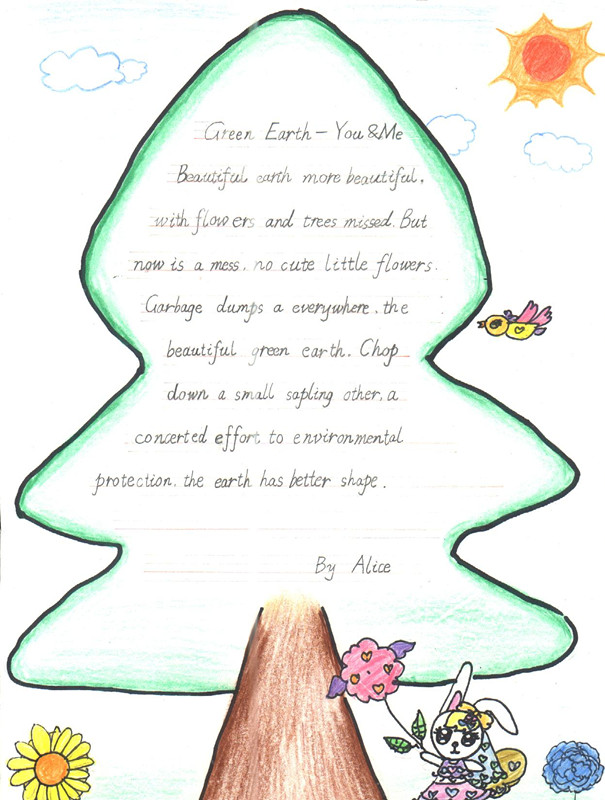 Green Earth - You & Me
Beautiful earth more beautiful,
with flowers and trees missed. But
now is a mess. no cute little flowers.
Garbage dumps a everywhere. the
beautiful green earth. Chop
down a small sapling other, a
concerted effort to environmental
protection. the earth has better shape.
By Alice